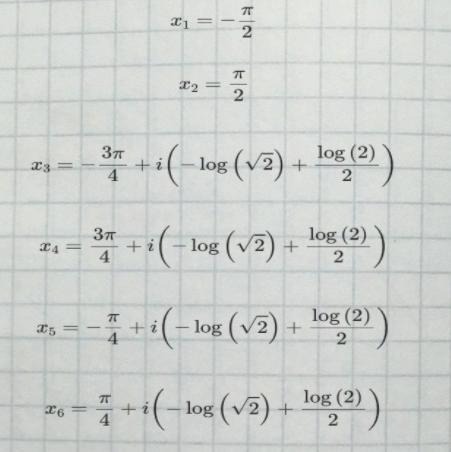 x₁ = −π/2
x₂ = π/2
x₃ = −3π/4 + i(−log(√2) + log(2)/2)
x₄ = 3π/4 + i(−log(√2) + log(2)/2)
x₅ = −π/4 + i(−log(√2) + log(2)/2)
x₆ = π/4 + i(−log(√2) + log(2)/2)